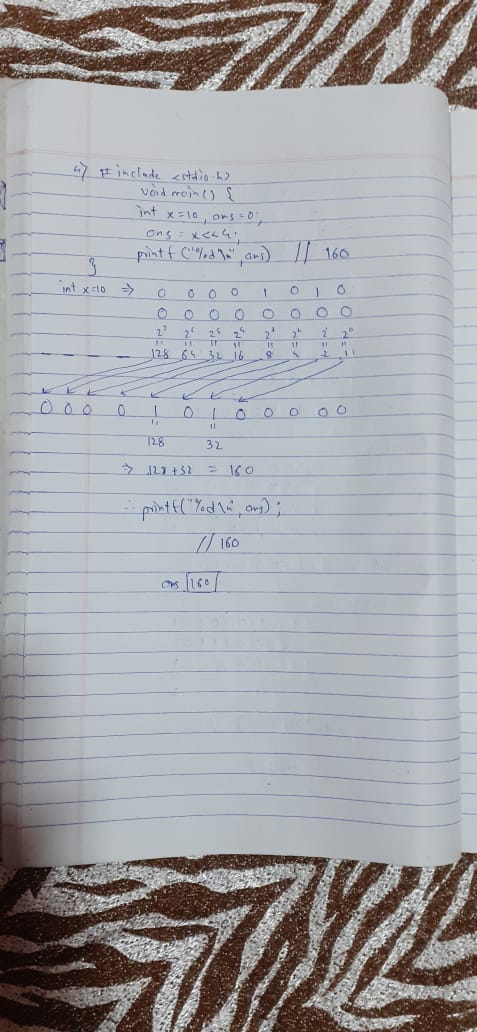 4) #include <stdio.h>
void main() {
int x=10, ans=0;
ans = x<<4;
printf("%d\n", ans) // 160
}
int x=10 ⇒ 0 0 0 0 1 0 1 0
0 0 0 0 0 0 0 0
2⁷ 2⁶ 2⁵ 2⁴ 2³ 2² 2¹ 2⁰
" " " " " " " "
128 64 32 16 8 4 2 1
0 0 0 0 1 0 1 0 0 0 0 0
" "
128 32
⇒ 128+32 = 160
∴ printf("%d\n", ans);
// 160
ans 160